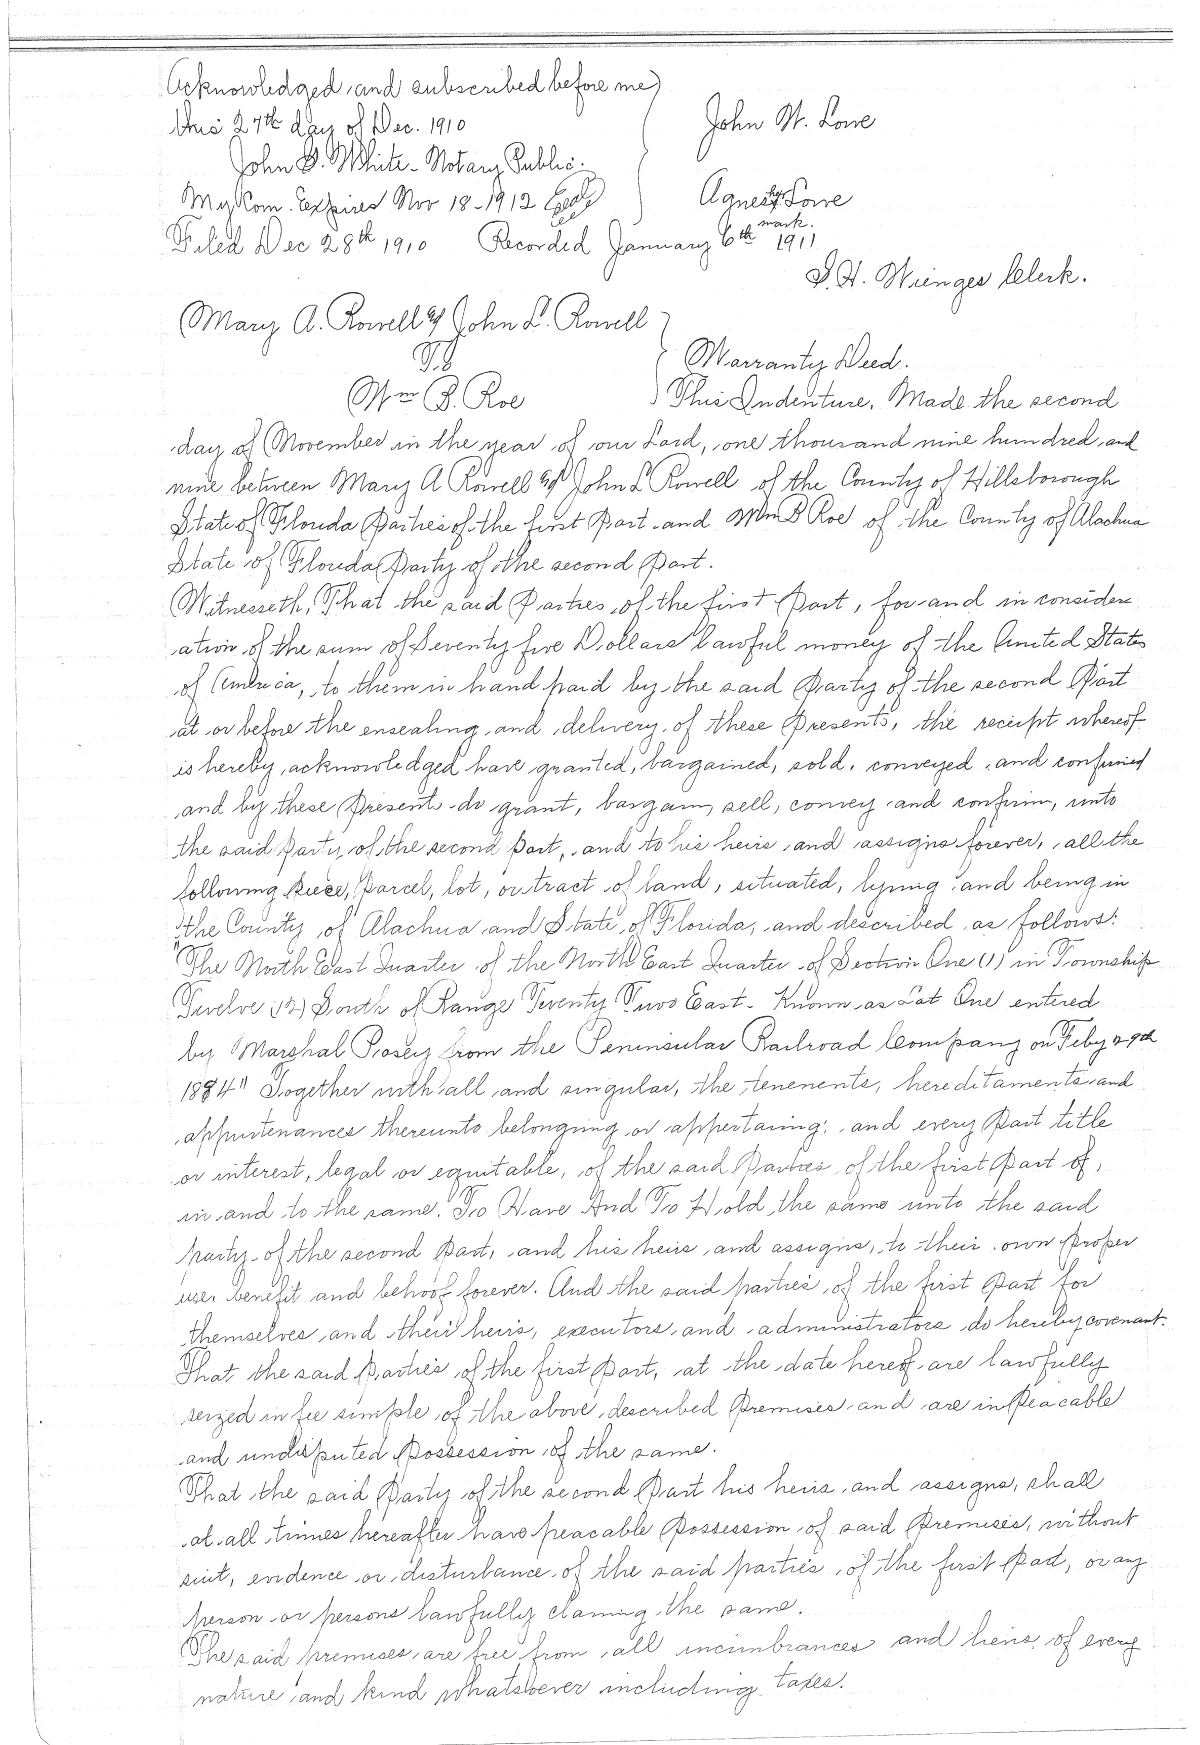 Acknowledged and subscribed before me)
this 27th day of Dec. 1910
John W. Lowe
John D. White - Notary Public.
My Com. Expires Nov 18-1912 Seal
Agnes her Lowe
mark.
Filed Dec 28th 1910 Recorded January 6th 1911
S. H. Wienges Clerk.
Mary A. Rowell & John L. Rowell
To
Warranty Deed.
Wm B. Roe
This Indenture, Made the second
day of November in the year of our Lord, one thousand nine hundred and
nine between Mary A Rowell & John L Rowell of the County of Hillsborough
State of Florida Parties of the first Part and Wm B Roe of the County of Alachua
State of Florida Party of the second Part.
Witnesseth, That the said Parties of the first Part, for and in consider
ation of the sum of Seventy five Dollars lawful money of the United States
of America, to them in hand paid by the said Party of the second Part
at or before the ensealing and delivery of these Presents, the receipt whereof
is hereby acknowledged have granted, bargained, sold, conveyed and confirmed
and by these Presents do grant, bargain, sell, convey and confirm, unto
the said Party of the second Part, and to his heirs and assigns forever, all the
following piece, Parcel, lot, or tract of land, situated, lying and being in
the County of Alachua and State of Florida, and described as follows:
"The North East Quarter of the North East Quarter of Section One (1) in Township
Twelve (12) South of Range Twenty Two East - Known as Lot One entered
by Marshal Posey from the Peninsular Railroad Company on Feby 29th
1884" Together with all and singular, the tenenents, hereditaments and
appurtenances thereunto belonging or appertaining: and every Part title
or interest, legal or equitable, of the said Parties of the first Part of,
in and to the same. To Have And To Hold the same unto the said
party of the second Part, and his heirs and assigns, to their own proper
use, benefit and behoof forever. And the said parties of the first Part for
themselves and their heirs, executors and administrators do hereby covenant.
That the said Parties of the first Part, at the date hereof are lawfully
seized in fee simple of the above described Premises and are in Peacable
and undisputed Possession of the same.
That the said Party of the second Part his heirs and assigns, shall
at all times hereafter have peacable Possession of said Premises, without
suit, evidence or disturbance of the said parties of the first Pad, or any
person or persons lawfully claming the same.
The said premises are free from all incimbrances and liens of every
nature and kind whatsoever including taxes.